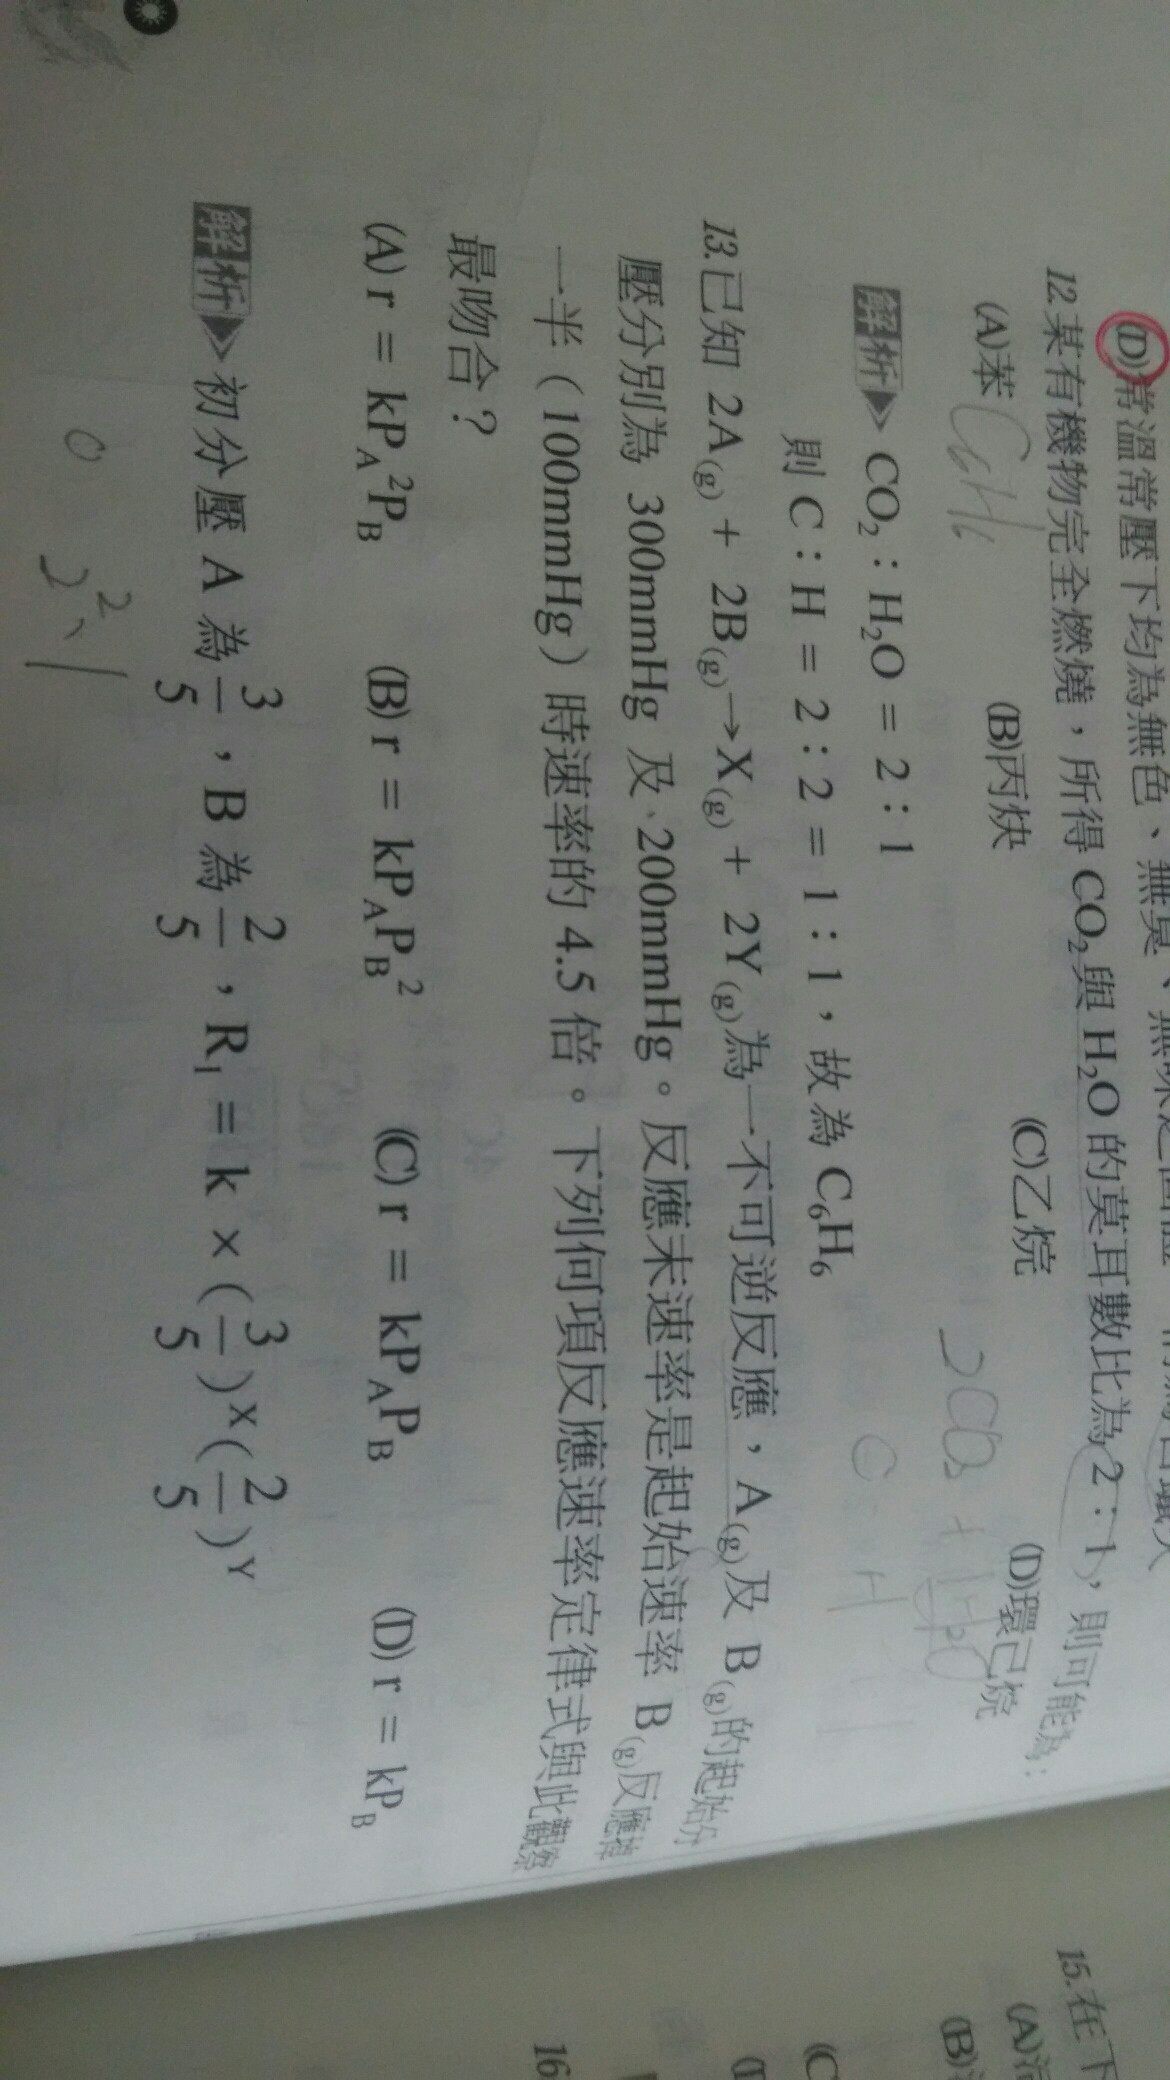 (D)常溫常壓下均為無色、無臭、無味之
12.某有機物完全燃燒，所得 CO₂與 H₂O 的莫耳數比為 2：1，則可能為：
(A)苯 C₆H₆ (B)丙炔 (C)乙烷 (D)環己烷
2CO₂ + 1H₂O
解析▶ CO₂：H₂O = 2：1
C H
則 C：H = 2：2 = 1：1，故為 C₆H₆
13.已知 2A(g) + 2B(g)→X(g) + 2Y(g)為一不可逆反應，A(g)及 B(g)的起始分
壓分別為 300mmHg 及 200mmHg。反應末速率是起始速率 B(g)反應掉
一半（100mmHg）時速率的 4.5 倍。下列何項反應速率定律式與此觀察
最吻合？
(A) r = kP_A²P_B (B) r = kP_AP_B² (C) r = kP_AP_B (D) r = kP_B
解析▶ 初分壓 A 為 3/5，B 為 2/5，R₁ = k × (3/5)ˣ(2/5)ʸ
15.在下
(A)
(B)
(C
(D
16